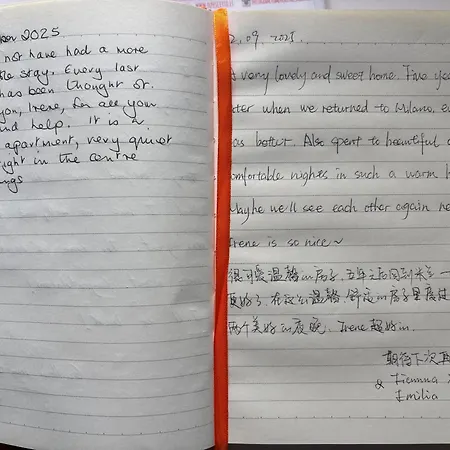 2025
not have had a more
stay. Every last
has been thought of.
you, Irene, for all your
and help. It is a
apartment, very quiet
right in the centre
2.09. 2025.
very lovely and sweet home. Five yea
when we returned to Milano, e
as better. Also spent to beautiful
omfortable nights in such a warm h
Maybe we'll see each other again ne
Irene is so nice~
很可爱温馨的房子,五年之后回到米兰一
真好~在这么温馨、舒适的房子里度过
两个美好的夜晚. Irene超好的.
期待下次再
&
Emilia